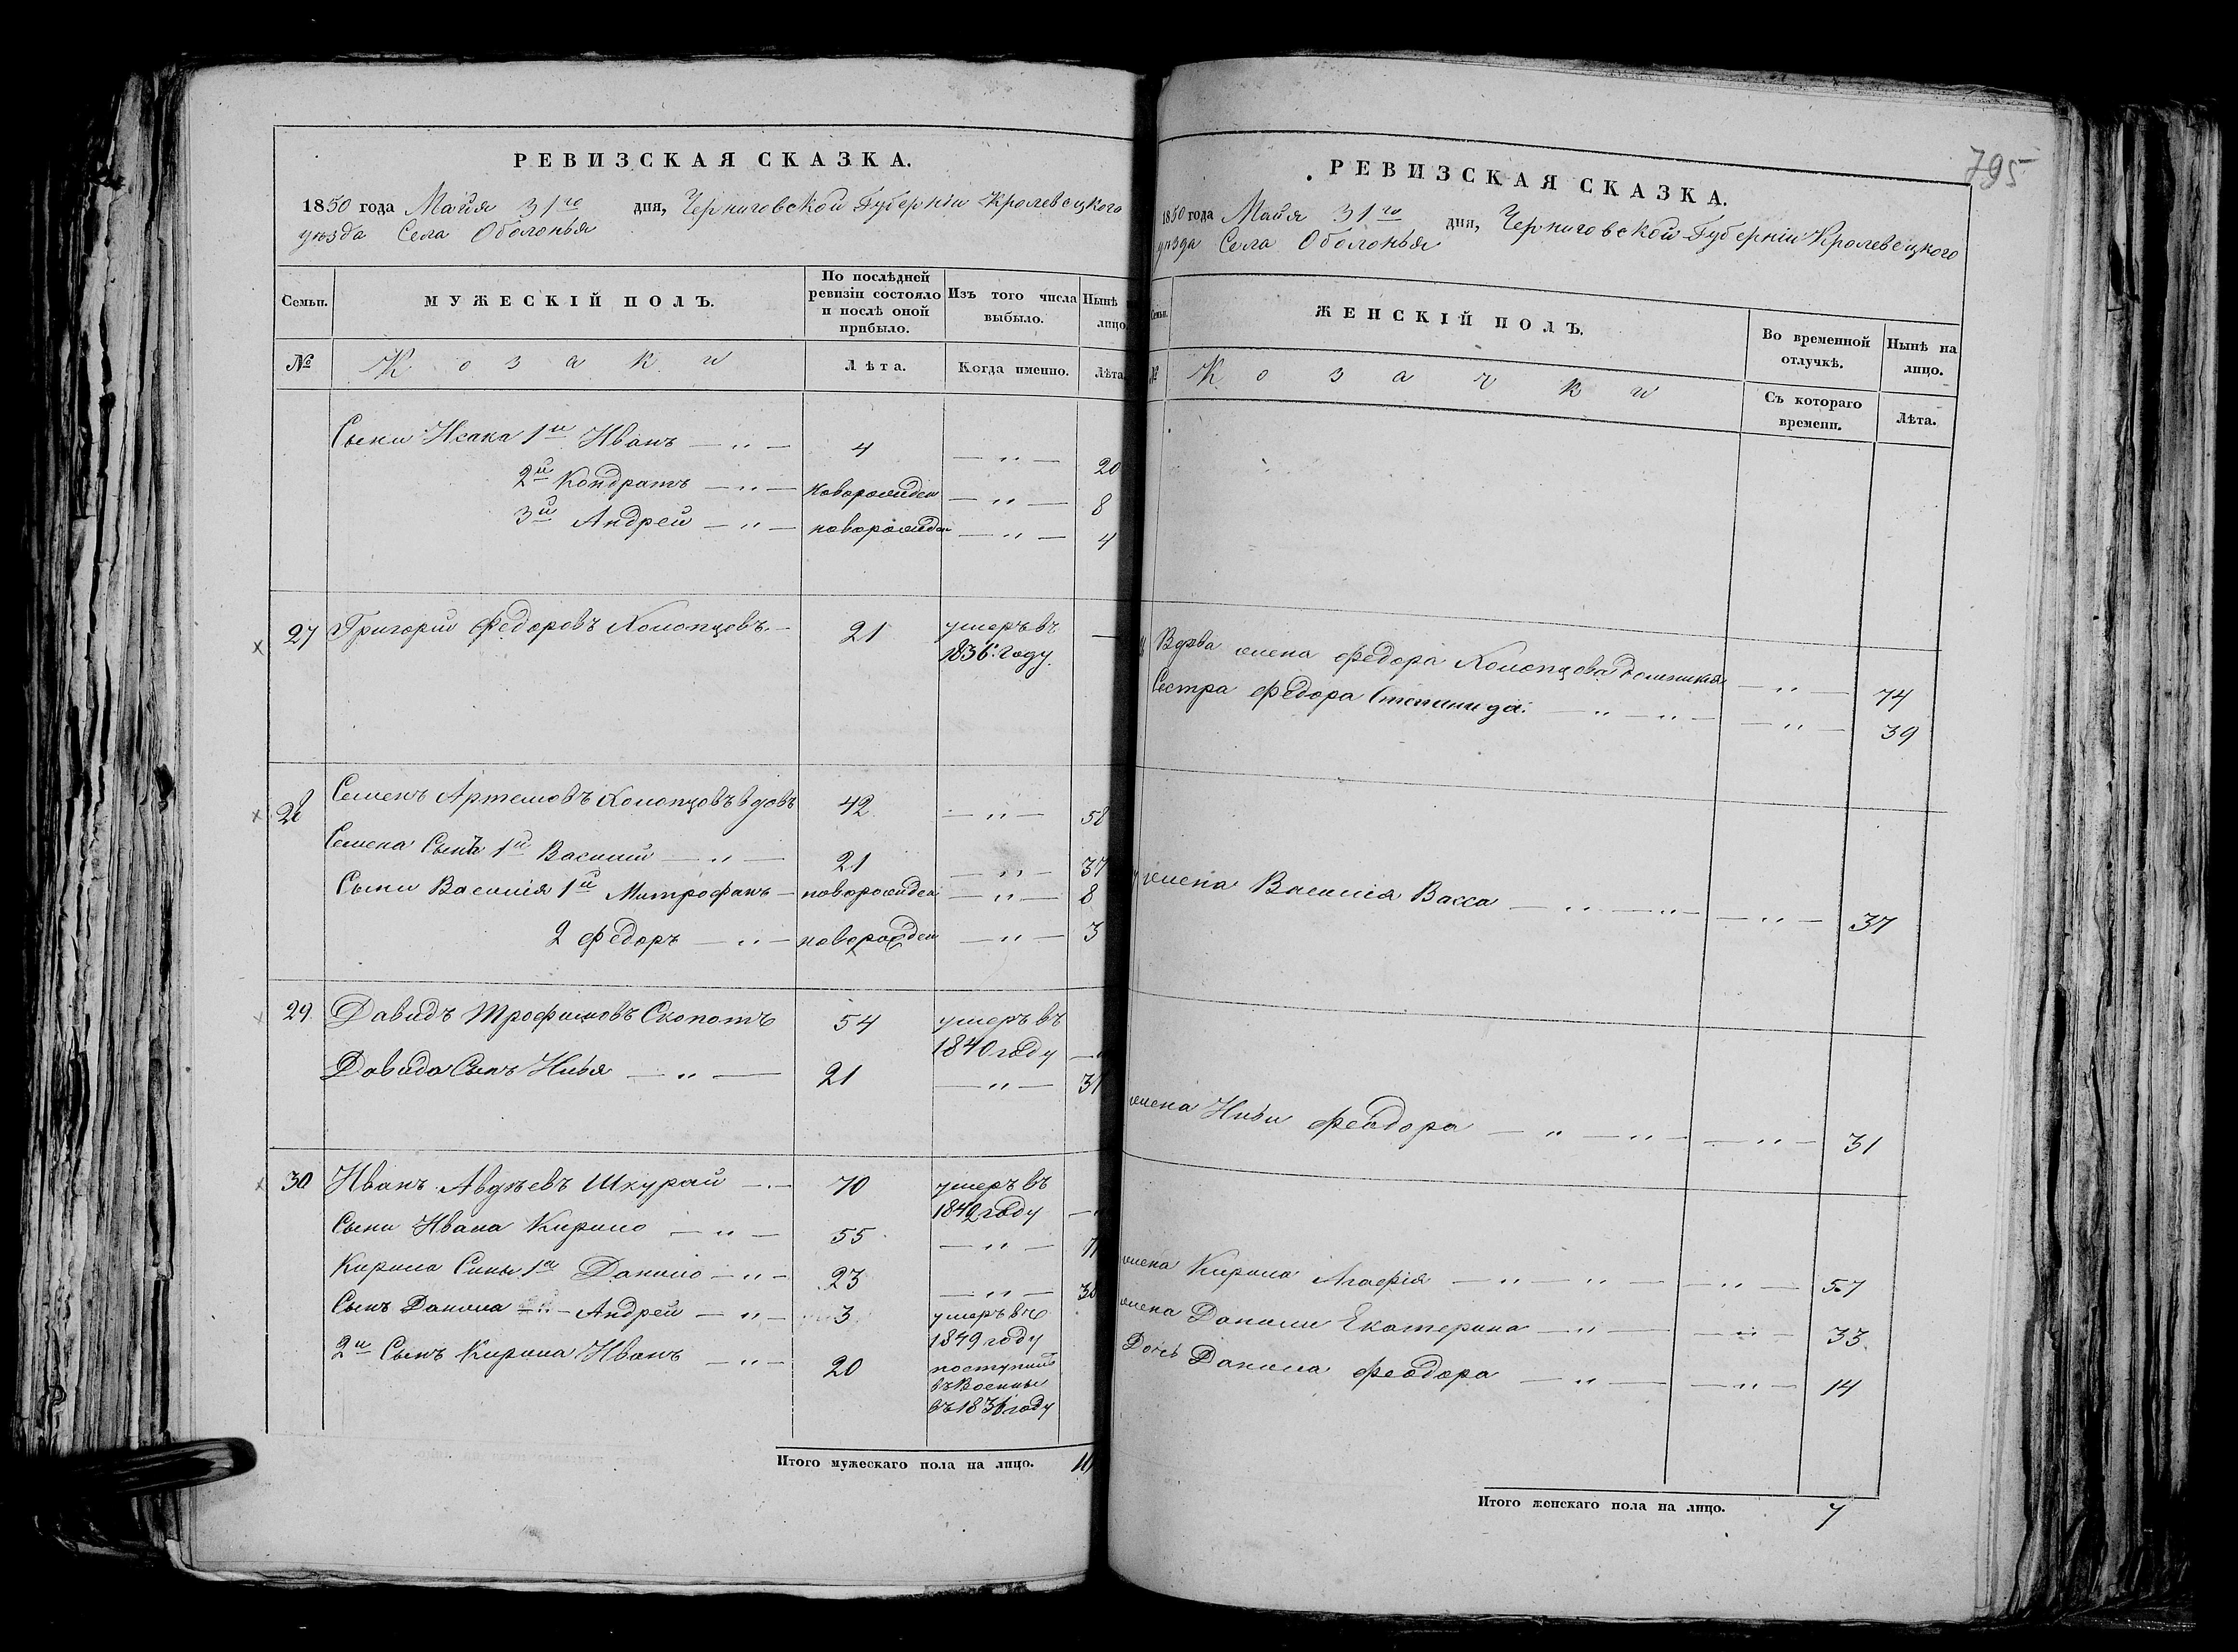 РЕВИЗСКАЯ СКАЗКА.
1850 года Майя 31го дня, Черниговской Губерніи Кролевецкого
уѣзда Села Оболонья
Семьи. МУЖЕСКІЙ ПОЛЪ. По послѣдней ревизіи состояло и послѣ оной прибыло. Изъ того числа выбыло. Нынѣ лицо.
№ Козаки Лѣта. Когда именно. Лѣта.
Сыни Исака 1й Иванъ — " — 4 — " — 20
2й Кондратъ — " — новорожден — " — 8
3й Андрей — " — новорожден — " — 4
27 Григорій Федоровъ 21 умеръ въ
1836 году.
28 Семенъ Артемовъ вдовъ 42 — " — 58
Семена Сынъ 1й Василій — " — 21 — " — 37
Сыни Василія 1й Митрофанъ — новорожден — " — 8
2 Федоръ — " — новорожден — " — 3
29 Давидъ Трофимовъ Скопотъ 54 умеръ въ
1840 году
Давида Сынъ Илья — " — 21 — " — 31
30 Иванъ Авдѣевъ Шкурай — 70 умеръ въ
1842 году
Сыни Ивана Кирило — " — 55 — " — 71
Кирила Сыны 1й Данило — " — 23 — " — 38
Сынъ Данила Андрей — " — 3 умеръ въ
1849 году
2й Сынъ Кирила Иванъ — " — 20 поступилъ
въ Военны
въ 1836 году
Итого мужескаго пола на лицо. 10
795
РЕВИЗСКАЯ СКАЗКА.
1850 года Майя 31го дня, Черниговской Губерніи Кролевецкого
уѣзда Села Оболонья
Семьи. ЖЕНСКІЙ ПОЛЪ. Во временной отлучкѣ. Нынѣ на лицо.
№ Козачки Съ котораго времени. Лѣта.
Вдова жена Федора — " — 74
Сестра Федора Степанида. — " — " — — " — 39
жена Василія Васса — " — " — — " — 37
жена Ильи Феодора — " — " — — " — 31
жена Кирила Агафія — " — " — — " — 57
жена Данили Екатерина — " — — " — 33.
Дочь Данила Феодора — " — — " — 14
Итого женскаго пола на лицо. 7